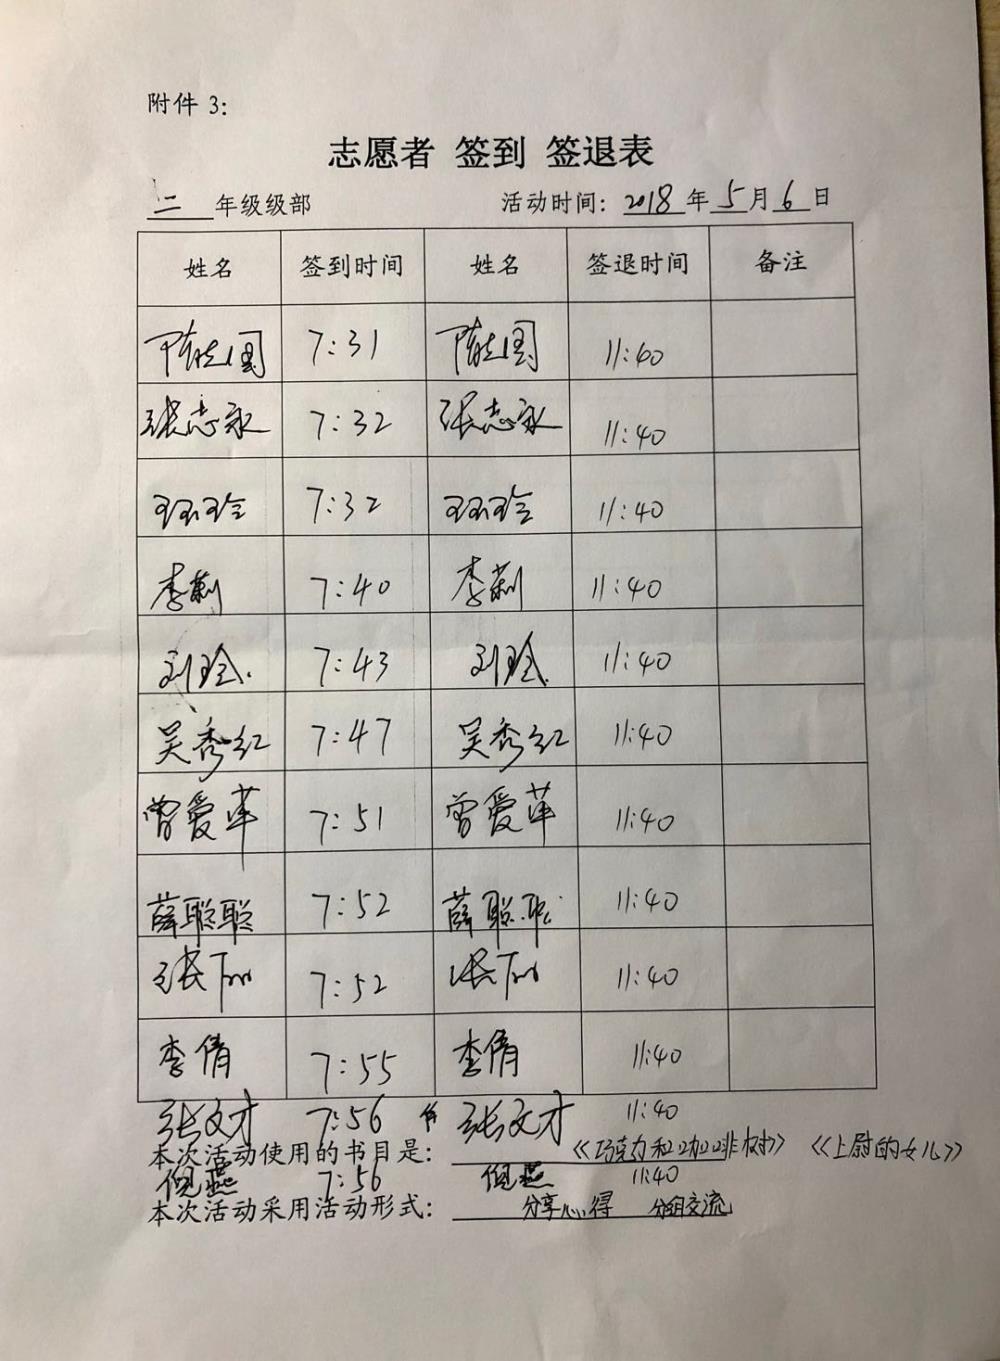 附件 3:
志愿者 签到 签退表
二 年级级部 活动时间: 2018 年 5 月 6 日
姓名 签到时间 姓名 签退时间 备注
7:31 11:40
张志永 7:32 张志永 11:40
7:32 11:40
李莉 7:40 李莉 11:40
刘玲 7:43 刘玲 11:40
吴秀红 7:47 吴秀红 11:40
曾爱苹 7:51 曾爱苹 11:40
薛聪聪 7:52 薛聪聪 11:40
张 7:52 张 11:40
李倩 7:55 李倩 11:40
张文才 7:56 张文才 11:40
本次活动使用的书目是: 《巧克力和咖啡树》 《上尉的女儿》
倪燕 7:56 倪燕 11:40
本次活动采用活动形式: 分享心得 分组交流